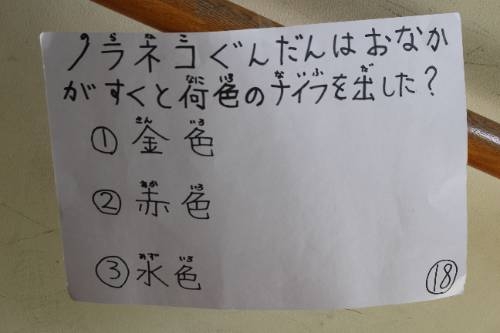 ノラネコぐんだんはおなか
がすくと荷色のナイフを出した?
① 金色
② 赤色
③ 水色
⑱